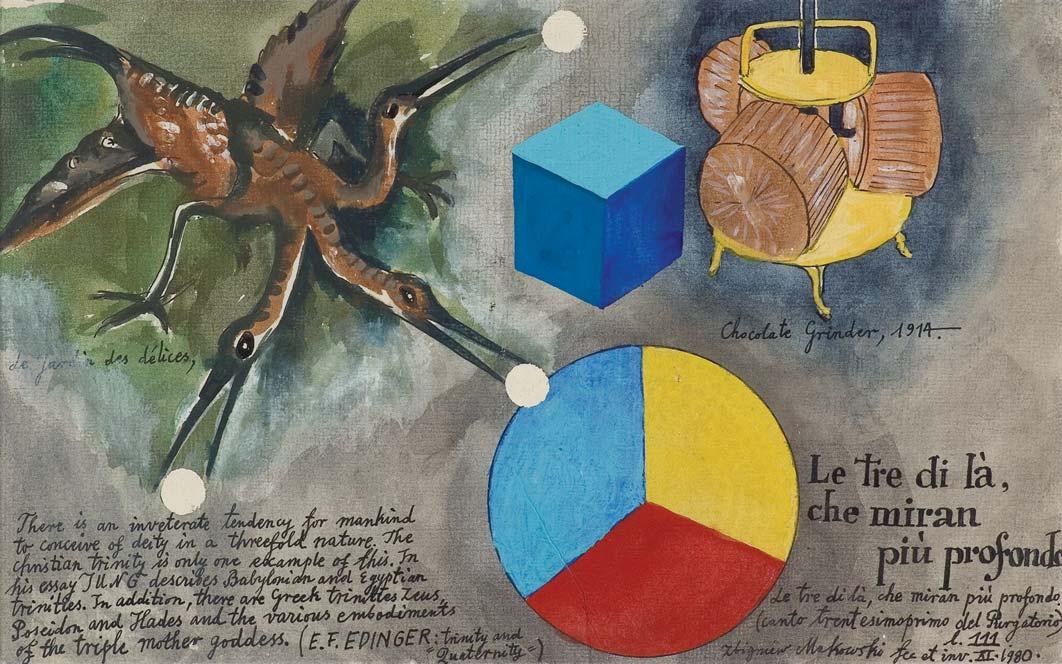 Chocolate Grinder, 1914.
le jardin des délices,
Le tre di là,
che miran
più profondo
There is an inveterate tendency for mankind
to conceive of deity in a threefold nature. The
christian trinity is only one example of this. In
his essay JUNG describes Babylonian and Egyptian
trinities. In addition, there are Greek trinities Zeus,
Poseidon and Hades and the various embodiments
of the triple mother goddess. (E.F. EDINGER: Trinity and
Quaternity")
Le tre di là, che miran più profondo
(canto trentesimoprimo del Purgatorio)
l. 111
Zbigniew Makowski fec et inv. XI. 1980.